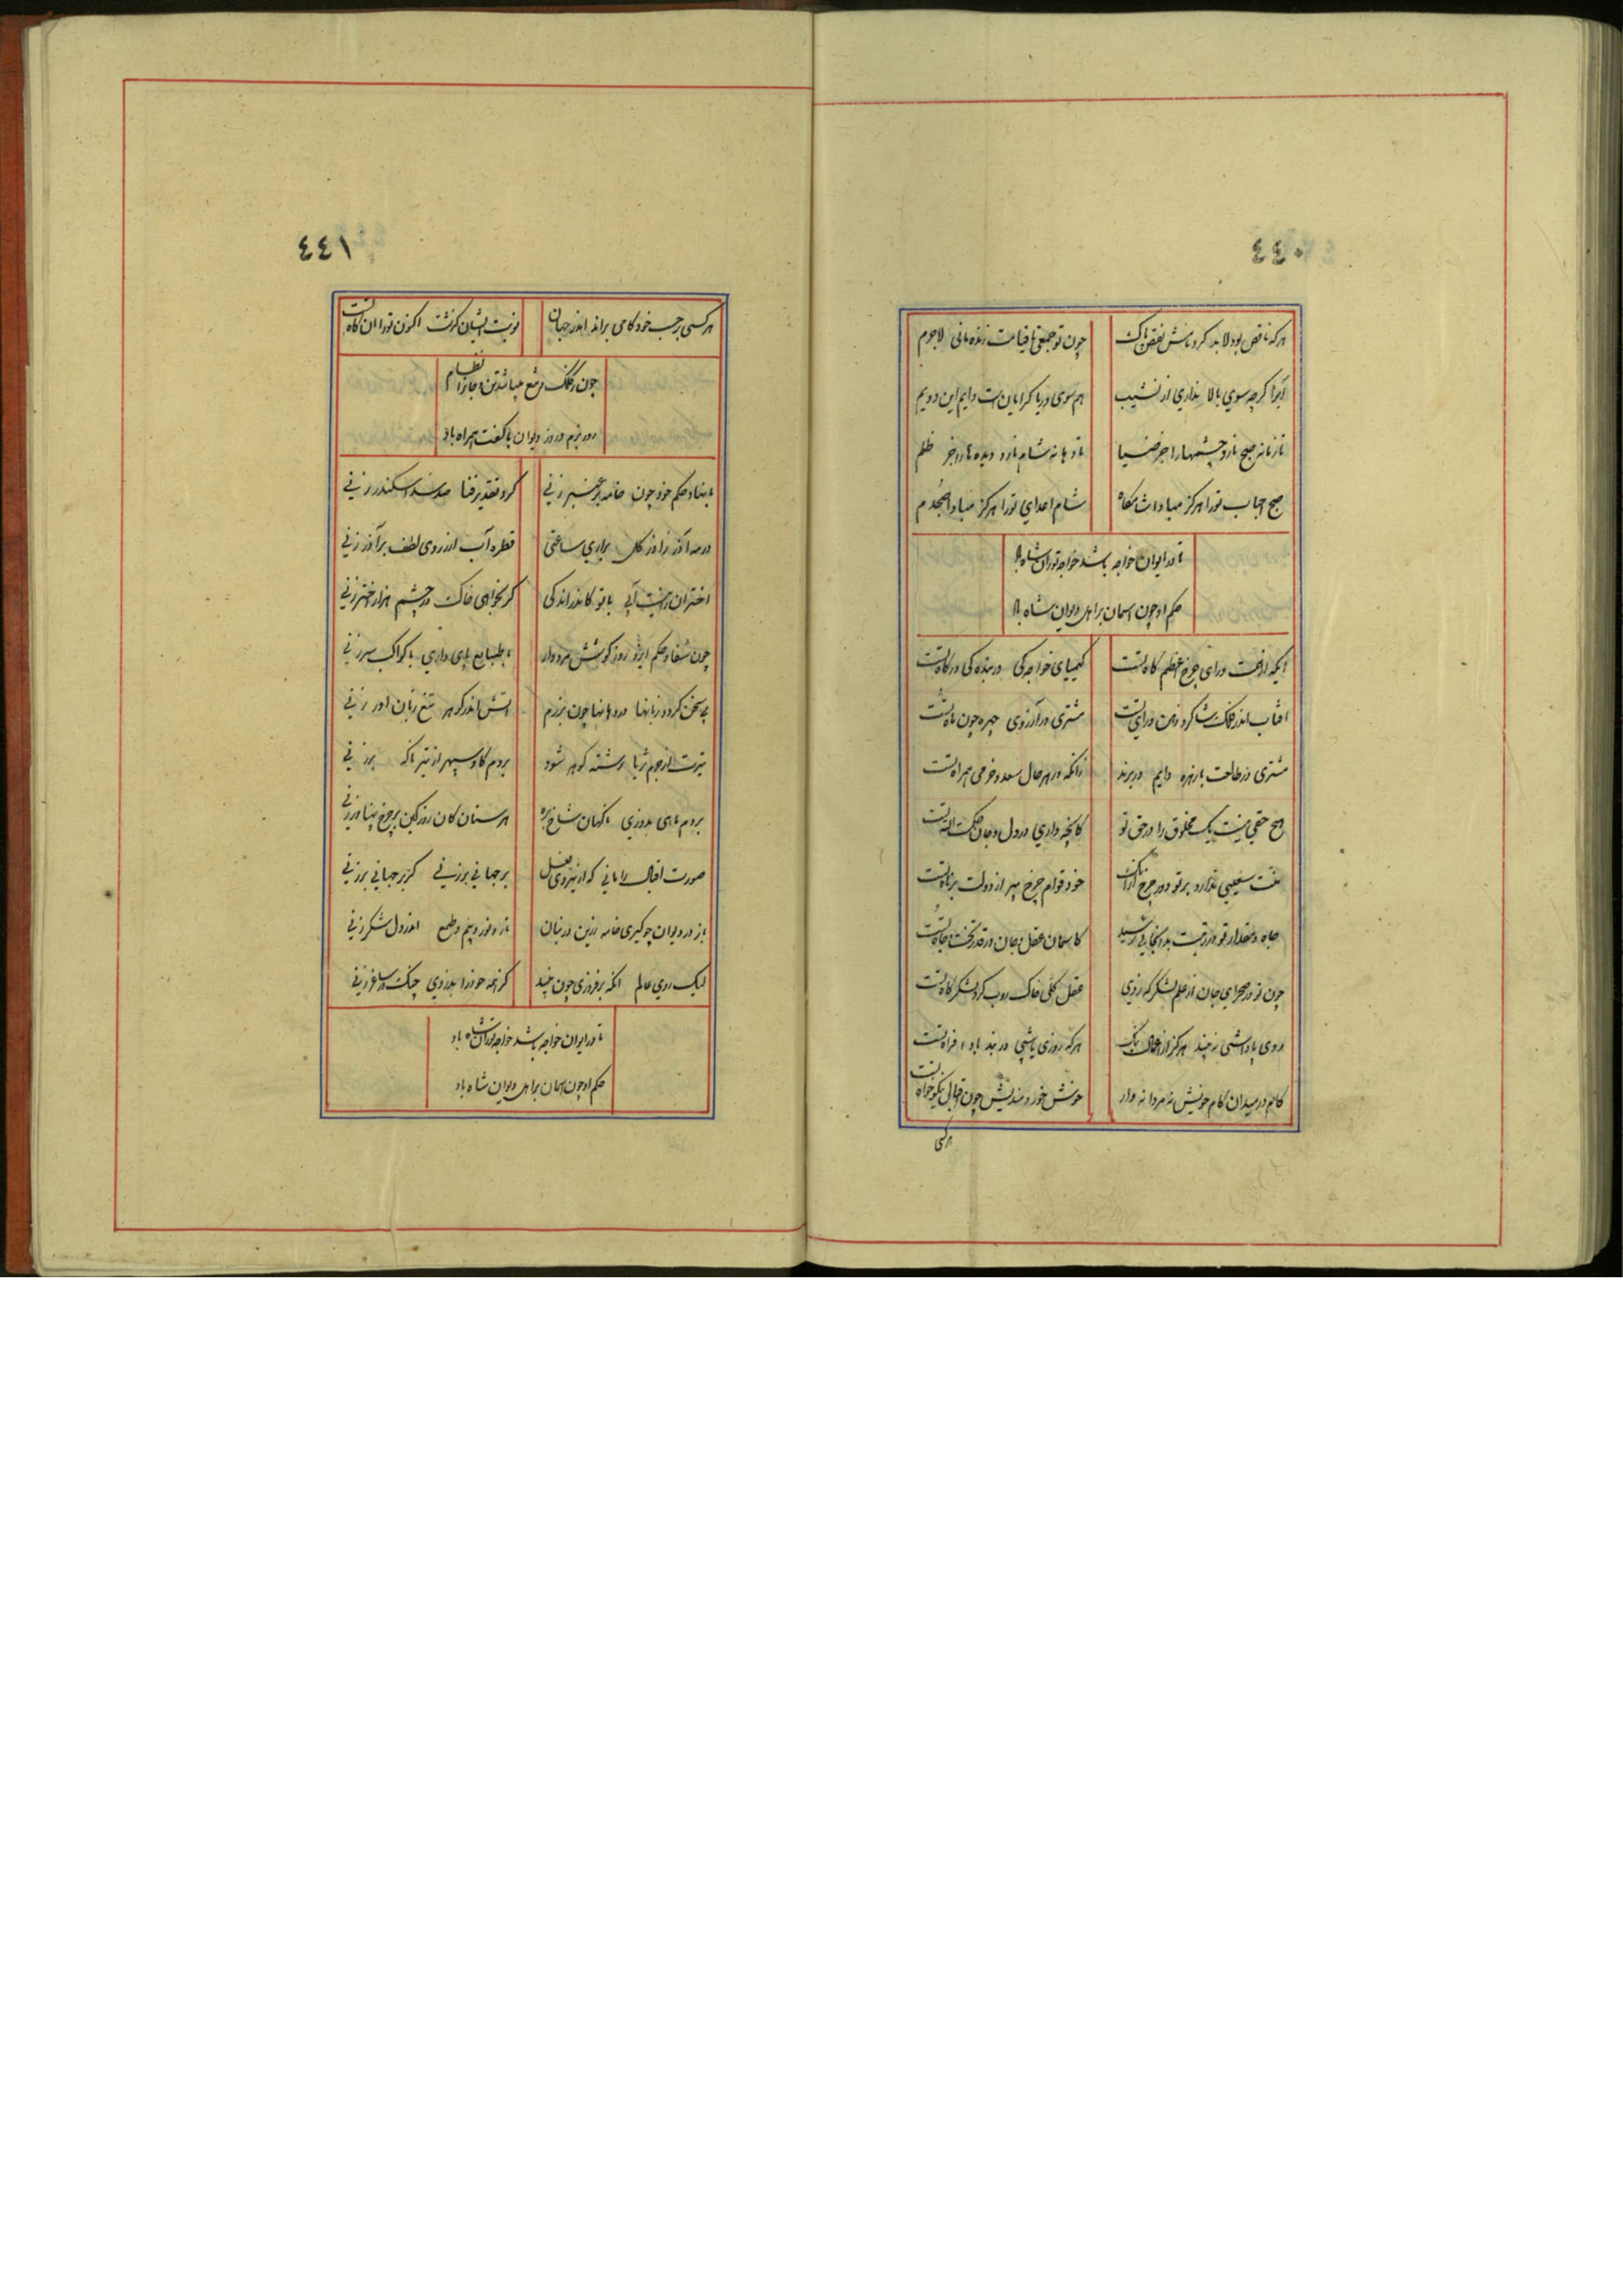 ٤٤٠
هرکه ناقص بود لابد کرد نامش نقص پاک چون تو جمعی تا قیامت زنده مانی لاجرم
ابرا کرچه سوی بالا نداری از نشیب هم سوی دریا کرایان است دایم این دویم
تا زمانه صبح نارد چشمها را جز ضیا تا دهانه شام نارد دیده ها را جز ظلم
صبح احباب تورا هرکز مبادا شامگاه شام اعدای تورا هرکز مبادا صبحدم
تا در ایوان خواجه باشد خواجه توران شاه باد
حکم او چون اسمان بر اهل دیوان شاه باد
ایکه از همت ورای چرخ اعظم کاه تست کیمیای خواجه کی در بنده کی درکاه تست
افتاب اندر فلک شاکرد ذهن و رای تست مشتری در آرزوی چهره چون ماه تست
مشتری در طالعت با زهره دایم در برند زانکه در هر حال سعد و خرمی همراه تست
هیچ حقی نیست یک مخلوق را در حق تو کانچه داری در دل و جان حکمت الله تست
منت سیبی ندارد بر تو دور چرخ از آنک خود قوام چرخ پیر از دولت برناه تست
جاه و مقدار تو در رتبت بدو نجایی رسید کاسمان عقل و جان در قدر تخت جاه تست
چون تو در صحرای جان از علم لشکر که زدی عقل کلی خاک روب کرد لشکر کاه تست
روی پاداشی نه بیند هرکز از افعال نیک هرکه روزی پاشی در بند باد افراه تست
کام در میدان کام خویش نه مردانه وار خوش خور و مندیش چون اقبال نیکو خواه تست
هرکسی
٤٤١
هرکسی بر حسب خود کامی براند اندر جهان نوبت ایشان گذشت اکنون تورا آن کاه تست
چون فلک رفیع باشد تن و جانرا نظام
روز بزم و روز دیوان با کفت همراه باد
با نفاد حکم خود چون خامه بر عنبر زنی کرد تقدیر فنا صد سد اسکندر زنی
در مه آذر ز آذر گل براری ساعتی قطره آب ار ز روی لطف بر آذر زنی
اختران را نیست آبی با تو کاندر اندکی کر بخواهی خاک در چشم هزار اختر زنی
چون شفا و حکم ایزد روز کوشش مرد وار با طبایع پای داری با کواکب سر زنی
بی سخن کردد زبانها در دهانها چون برزم اتش اندر کوهر تیغ زبان اور زنی
تیرت از جرم ثریا رشته کوهر شود بر دم کاو سپهر از تیر ناکه بر زنی
بر دم ماهی بدوزی ناکهان شاخ بره هر سنان کان روز کین بر چرخ پهناور زنی
صورت اقبال را مانی که از نیروی فعل بر جهانی برزنی کر بر جهانی برزنی
باز در دیوان چو کیری خامه زرین در بنان تاز و نوز و بیم و طمع اندر دل لشکر زنی
لیک روی عالم انکه برفروزی چون بهند کز همه حوزا بدزدی چنک در ساغر زنی
تا در ایوان خواجه باشد خواجه توران شاه باد
حکم او چون اسمان بر اهل دیوان شاه باد